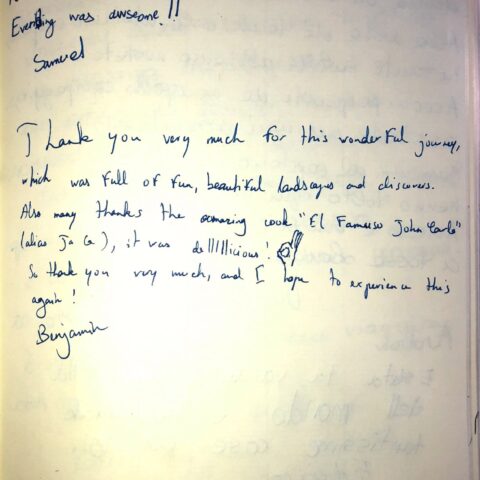 Everything was awseome!!
Samuel
Thank you very much for this wonderful journey,
which was full of fun, beautiful landscapes and discovers.
Also many thanks the amazing cook "El Famuso John Carlo"
(alias Ja Ca), it was delllllllicious!
So thank you very much, and I hope to experience this
again!
Benjamin